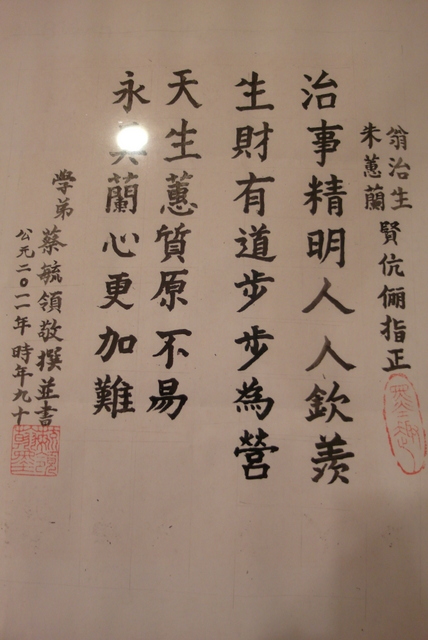 翁治生
朱蕙蘭
賢伉儷指正
治事精明人人欽羨
生財有道步步為營
天生蕙質原不易
永 蘭心更加難
學弟蔡毓領敬撰並書
公元二〇一一年 時年九十